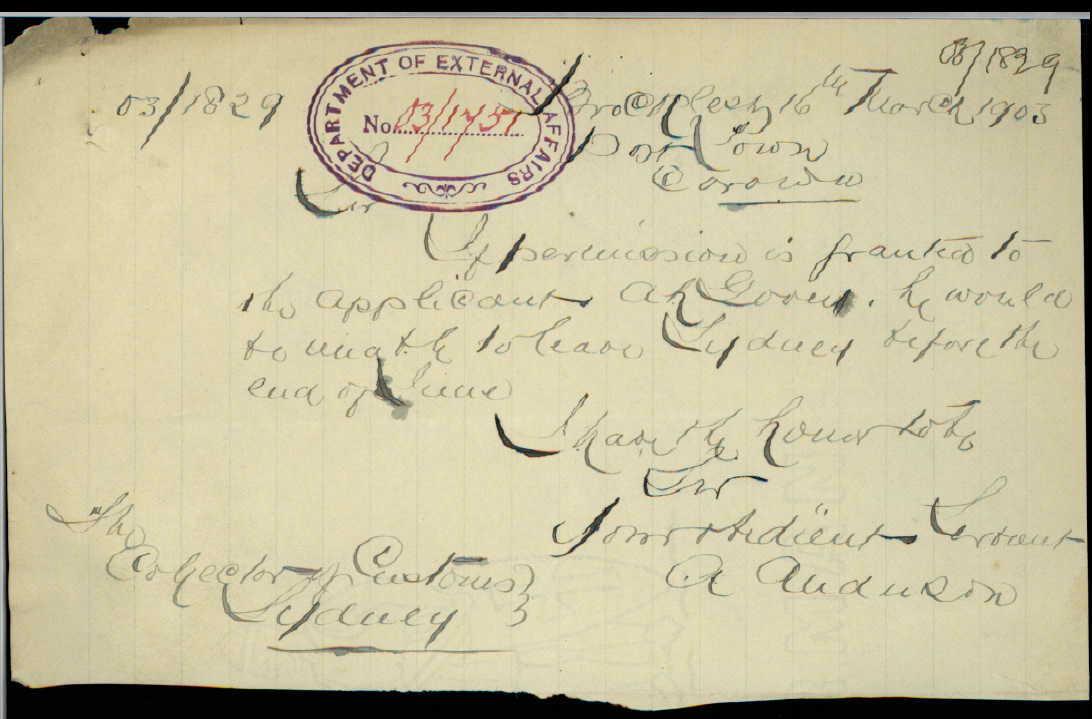 03/1829
03/1829
DEPARTMENT OF EXTERNAL AFFAIRS
No. 03/1751
Brocklesby 16th March 1903
Post Town
Corowa
Sir
If permission is granted to
the applicant Ah he would
be unable to leave Sydney before the
end of June
I have the honor to be
Sir
Your obedient Servant
A Anderson
The
Collector of Customs
Sydney